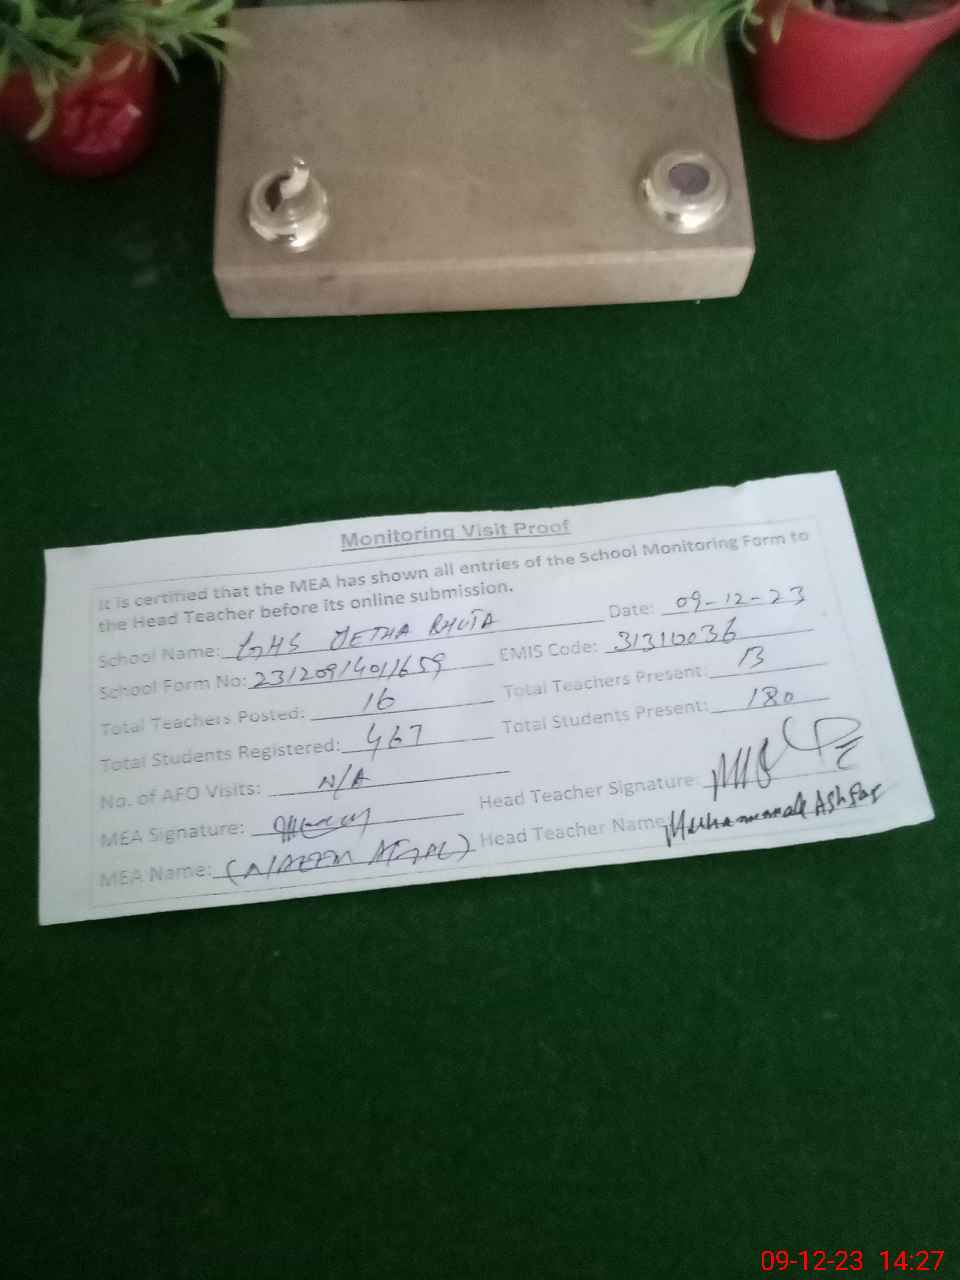 Monitoring Visit Proof
It is certified that the MEA has shown all entries of the School Monitoring Form to
the Head Teacher before its online submission.
School Name: GHS JETHA BHUTA Date: 09-12-23
School Form No: 23120914011659 EMIS Code: 31310036
Total Teachers Posted: 16 Total Teachers Present: 13
Total Students Registered: 467 Total Students Present: 180
No. of AFO Visits: N/A
MEA Signature: Head Teacher Signature:
MEA Name: (NAEEM AFZAL) Head Teacher Name Muhammad Ashfaq
09-12-23 14:27